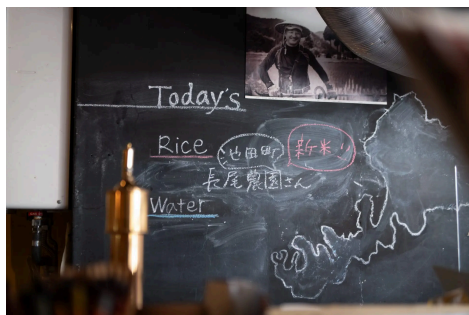 Today's
Rice 池田町 新米!!
長尾農園さん
Water